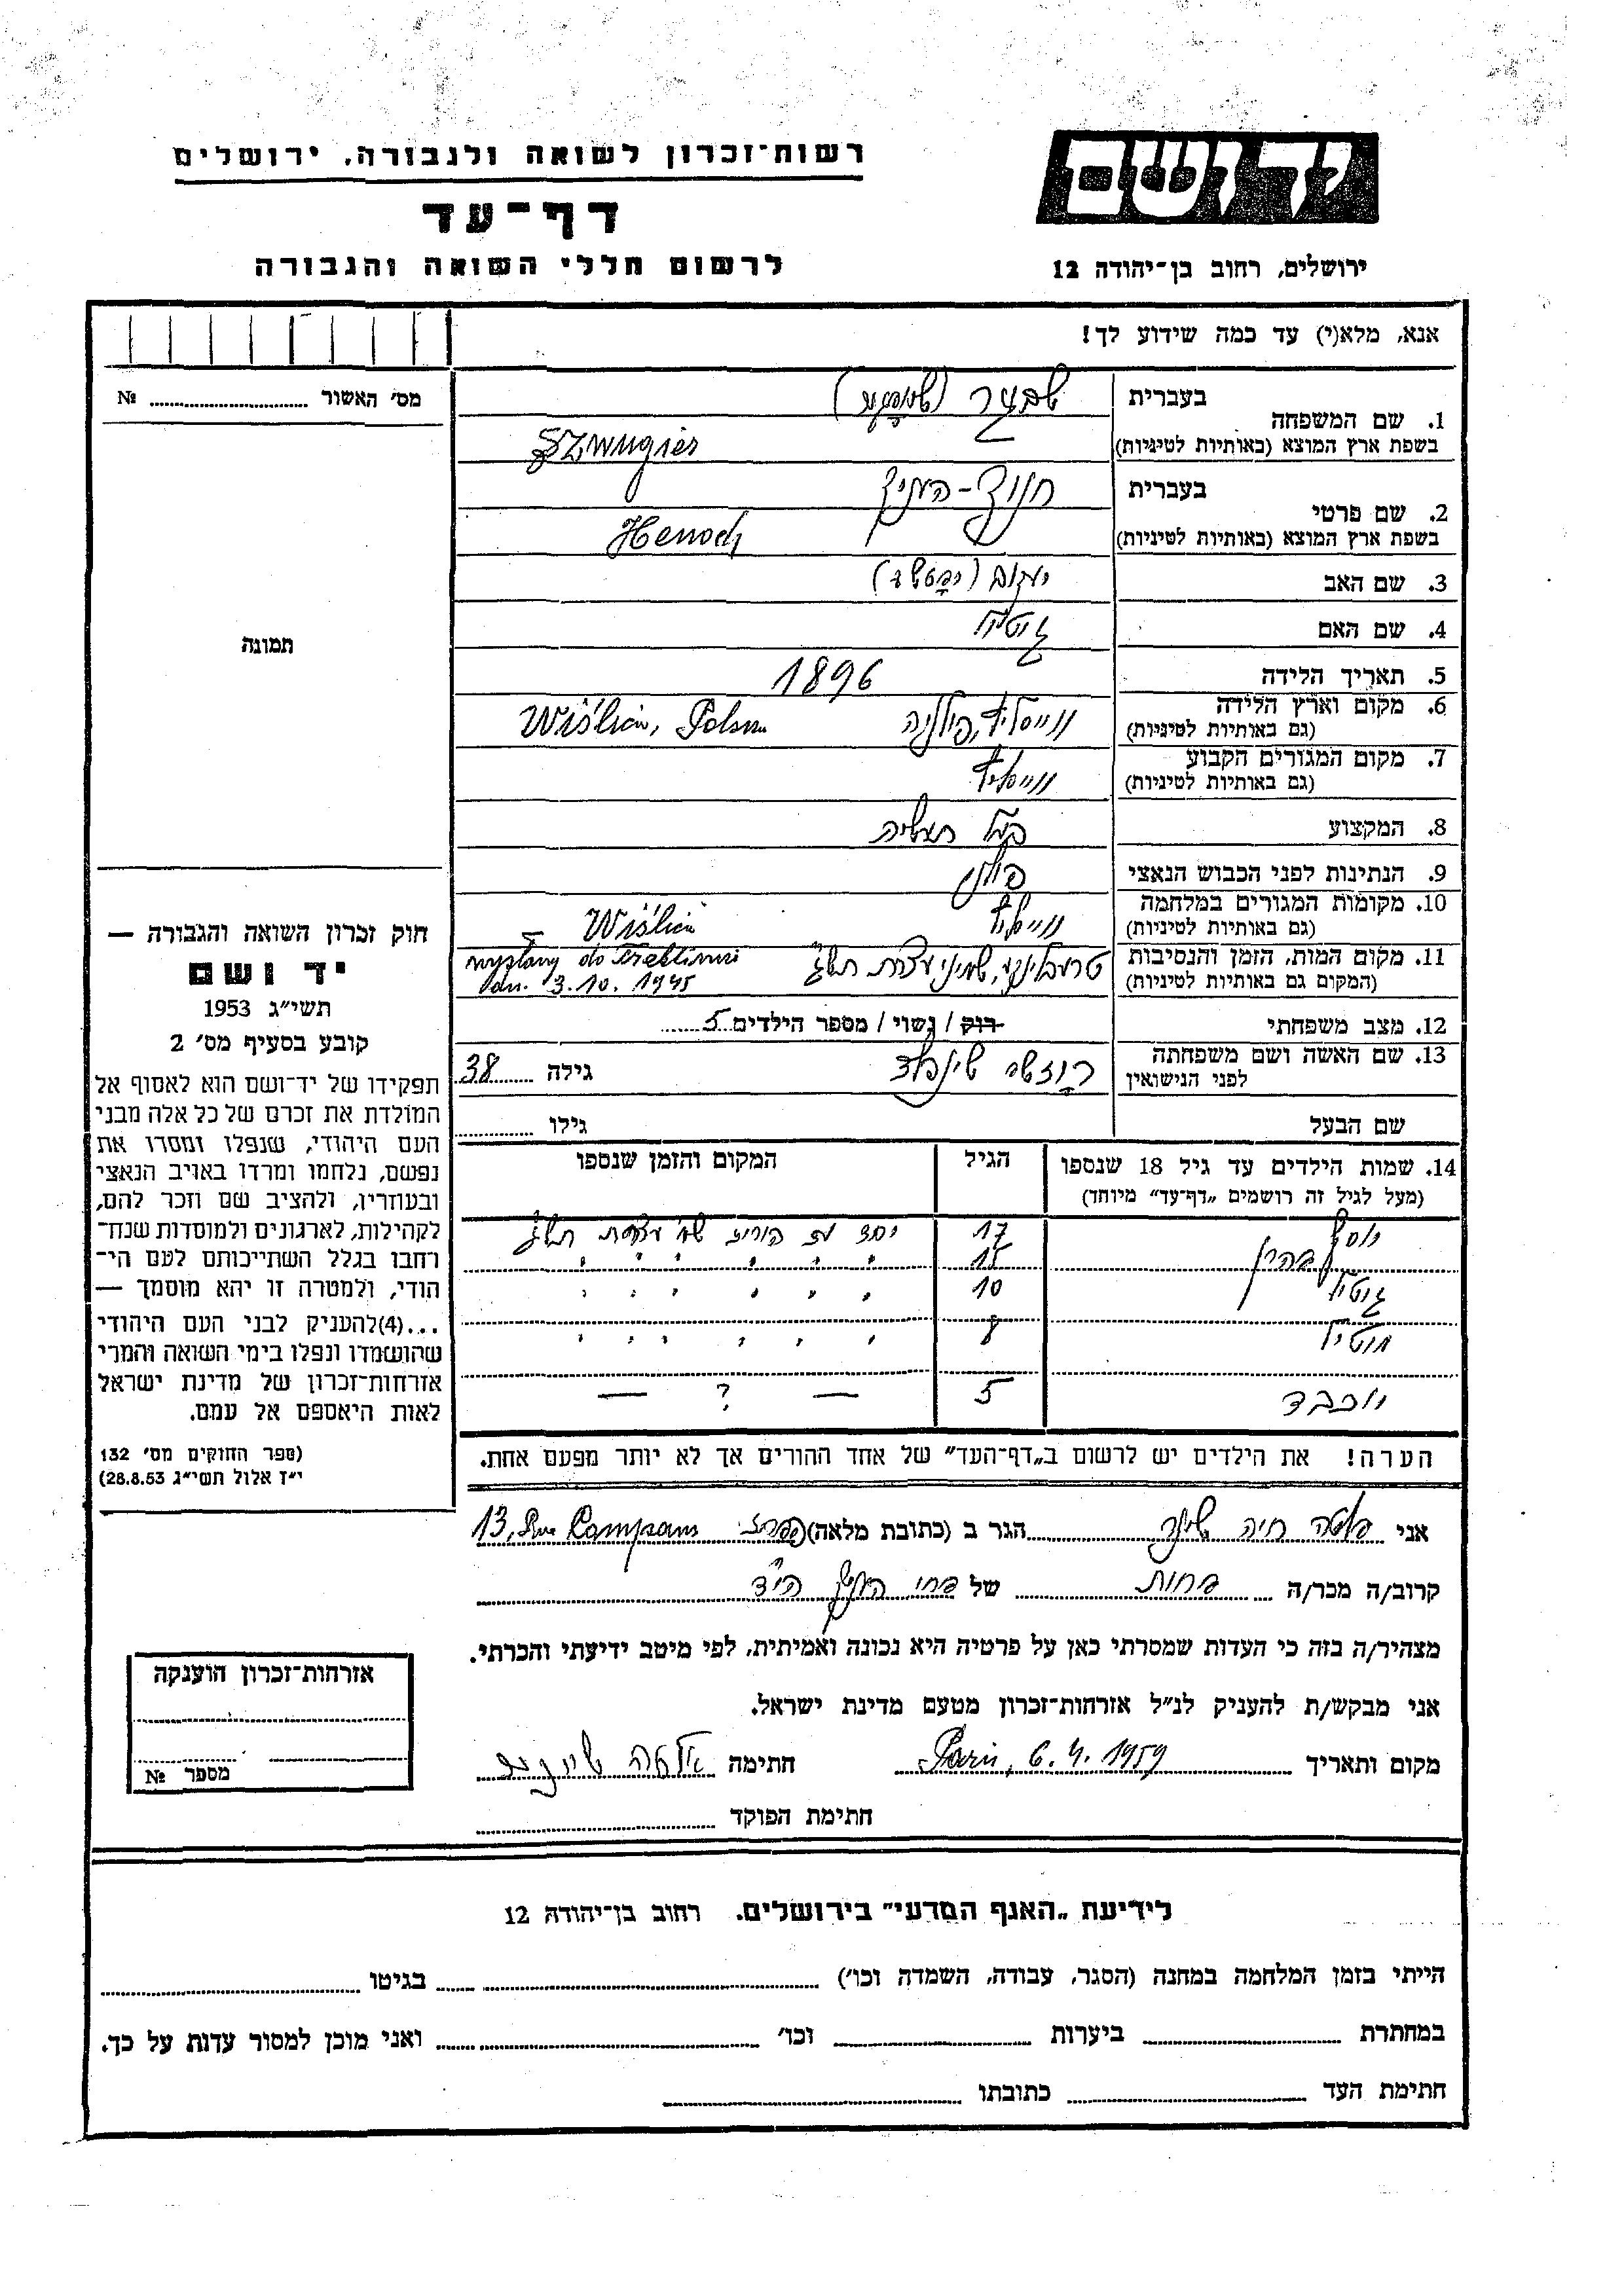 רשות־זכרון לשואה ולגבורה, ירושלים
דף־עד
לרשום חללי השואה והגבורה
יד ושם
ירושלים, רחוב בן־יהודה 12
אנא, מלא(י) עד כמה שידוע לך!
מס׳ האשור № ..........
תמונה
1. שם המשפחה
בעברית
בשפת ארץ המוצא (באותיות לטיניות)
2. שם פרטי
בעברית חנוך-העניך
בשפת ארץ המוצא (באותיות לטיניות) Henoch
3. שם האב יעקב
4. שם האם גיטל
5. תאריך הלידה 1896
6. מקום וארץ הלידה
(גם באותיות לטיניות) פולניה
7. מקום המגורים הקבוע
(גם באותיות לטיניות)
8. המקצוע בעל תעשיה
9. הנתינות לפני הכבוש הנאצי פולני
10. מקומות המגורים במלחמה
(גם באותיות לטיניות)
11. מקום המות, הזמן והנסיבות
(המקום גם באותיות לטיניות) שמיני עצרת תש"ג
dn. 3.10. 1945
12. מצב משפחתי רוק / נשוי / מספר הילדים 5
13. שם האשה ושם משפחתה
לפני הנישואין גילה 38
שם הבעל גילו ..........
14. שמות הילדים עד גיל 18 שנספו
(מעל לגיל זה רושמים „דף־עד״ מיוחד)
הגיל
המקום והזמן שנספו
יוסף 17 יחד עם הורים שמ' עצרת תש"ג
אהרן 15 " " " " "
גיטל 10 " " " " "
מוטיל 8 " " " " "
יוכבד 5 — ? —
הערה! את הילדים יש לרשום ב„דף־העד״ של אחד ההורים אך לא יותר מפעם אחת.
חוק זכרון השואה והגבורה —
יד ושם
תשי״ג 1953
קובע בסעיף מס׳ 2
תפקידו של יד־ושם הוא לאסוף אל
המולדת את זכרם של כל אלה מבני
העם היהודי, שנפלו ומסרו את
נפשם, נלחמו ומרדו באויב הנאצי
ובעוזריו, ולהציב שם וזכר להם,
לקהילות, לארגונים ולמוסדות שנח־
רבו בגלל השתייכותם לעם הי־
הודי, ולמטרה זו יהא מוסמך —
...(4)להעניק לבני העם היהודי
שהושמדו ונפלו בימי השואה והמרי
אזרחות־זכרון של מדינת ישראל
לאות היאספם אל עמם.
(ספר החוקים מס׳ 132
י״ז אלול תשי״ג 28.8.53)
אני חיה הגר ב (כתובת מלאה) 13, Rue Compans
קרוב/ה מכר/ה אחות של אחי העניך הי"ד
מצהיר/ה בזה כי העדות שמסרתי כאן על פרטיה היא נכונה ואמיתית, לפי מיטב ידיעתי והכרתי.
אני מבקש/ת להעניק לנ״ל אזרחות־זכרון מטעם מדינת ישראל.
מקום ותאריך Paris, 6.4.1959 חתימה
חתימת הפוקד ..........
אזרחות־זכרון הוענקה
מספר №
לידיעת „האגף המדעי״ בירושלים, רחוב בן־יהודה 12
הייתי בזמן המלחמה במחנה (הסגר, עבודה, השמדה וכו׳) .......... בגיטו ..........
במחתרת .......... ביערות .......... וכו׳ .......... ואני מוכן למסור עדות על כך.
חתימת העד .......... כתובתו ..........